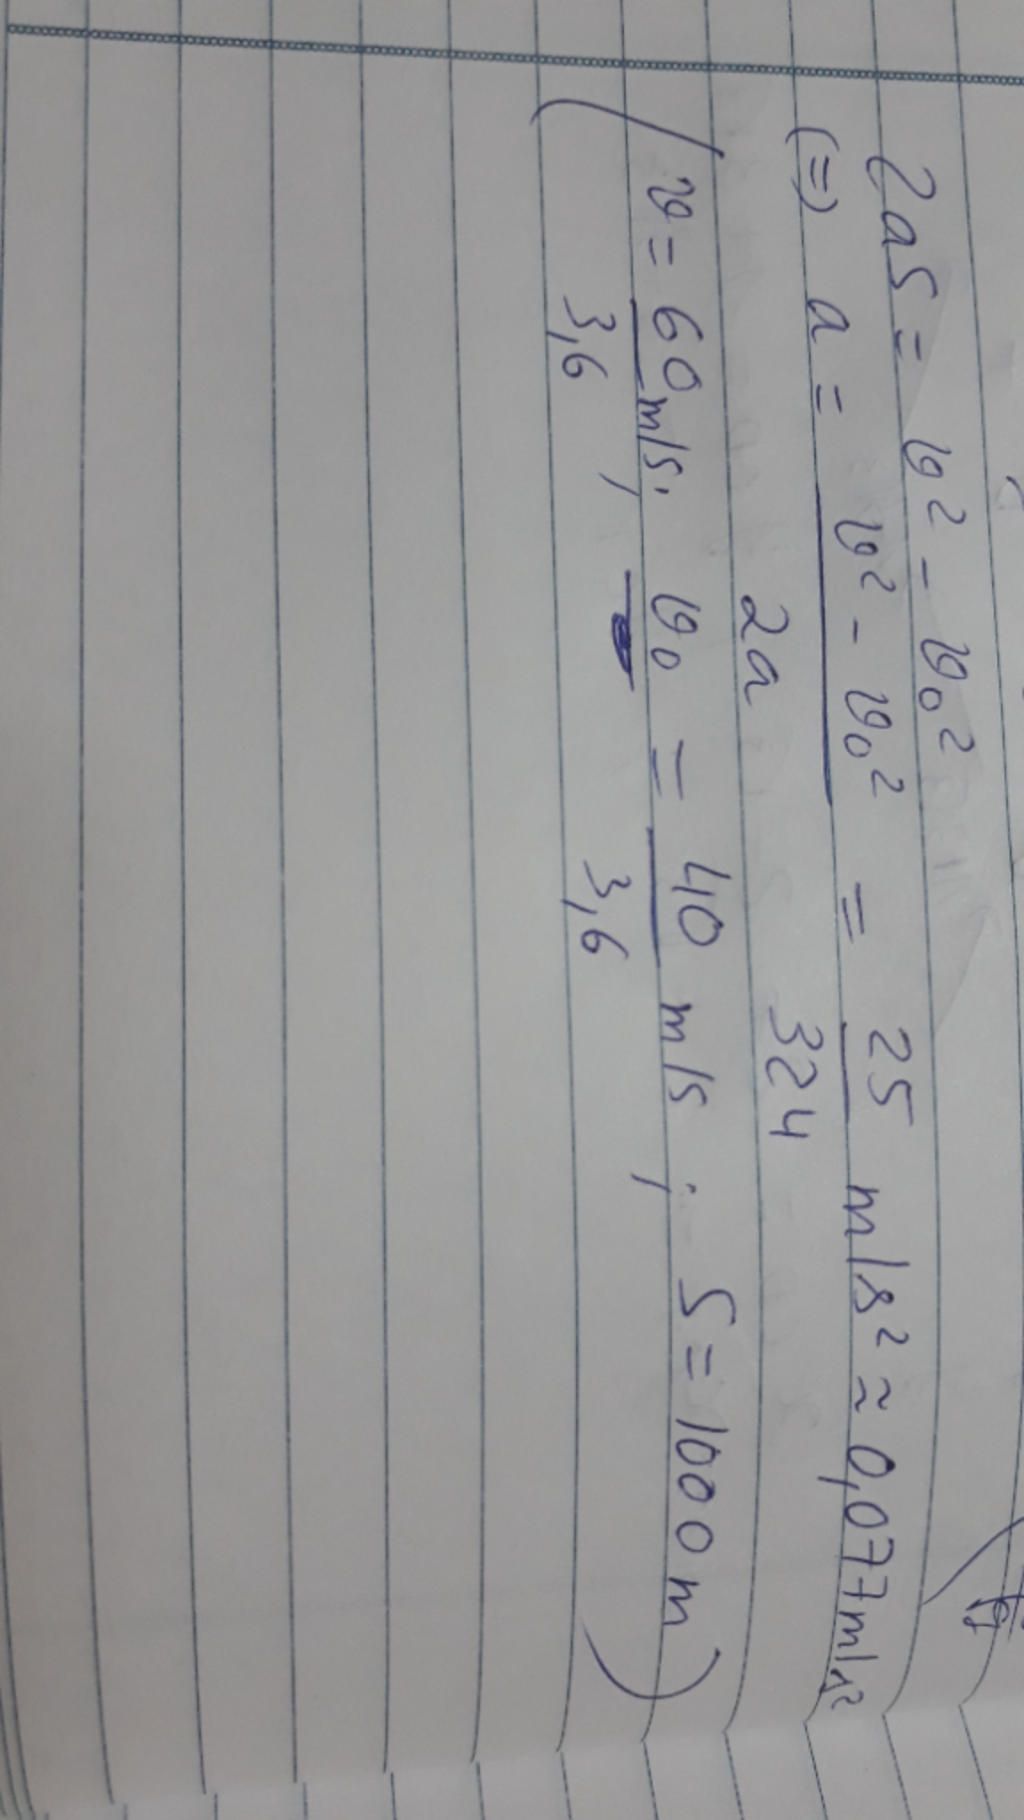 2aS = v² - v₀²
(=) a = v² - v₀² / 2a = 25 / 324 m/s² ≈ 0,077m/s²
(v = 60 / 3,6 m/s; v₀ = 40 / 3,6 m/s; S = 1000 m)